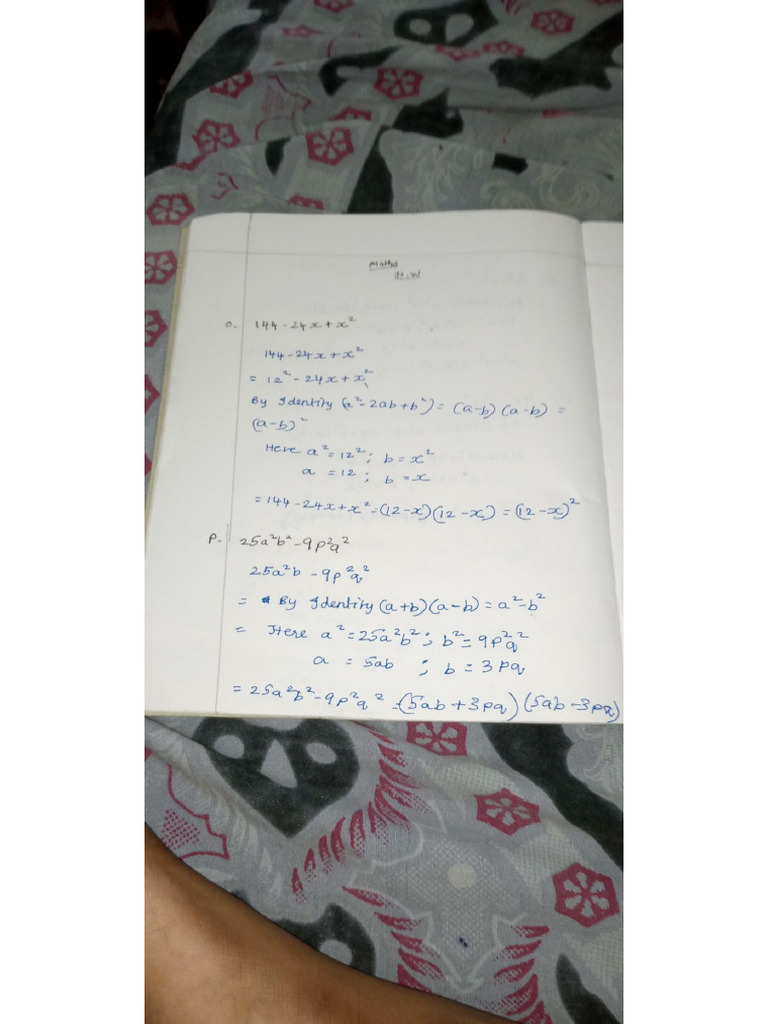 Maths
H.W
o. 144 - 24x + x²
144 - 24x + x²
= 12² - 24x + x²
By Identity (a² - 2ab + b²) = (a-b) (a-b) =
(a-b)²
Here a² = 12² ; b = x²
a = 12 ; b = x
= 144 - 24x + x² = (12-x)(12-x) = (12-x)²
P. 25a²b² - 9p²q²
25a²b - 9p²q²
= By Identity (a+b)(a-b) = a² - b²
= Here a² = 25a²b² ; b² = 9p²q²
a = 5ab ; b = 3pq
= 25a²b² - 9p²q² = (5ab + 3pq) (5ab - 3pq)